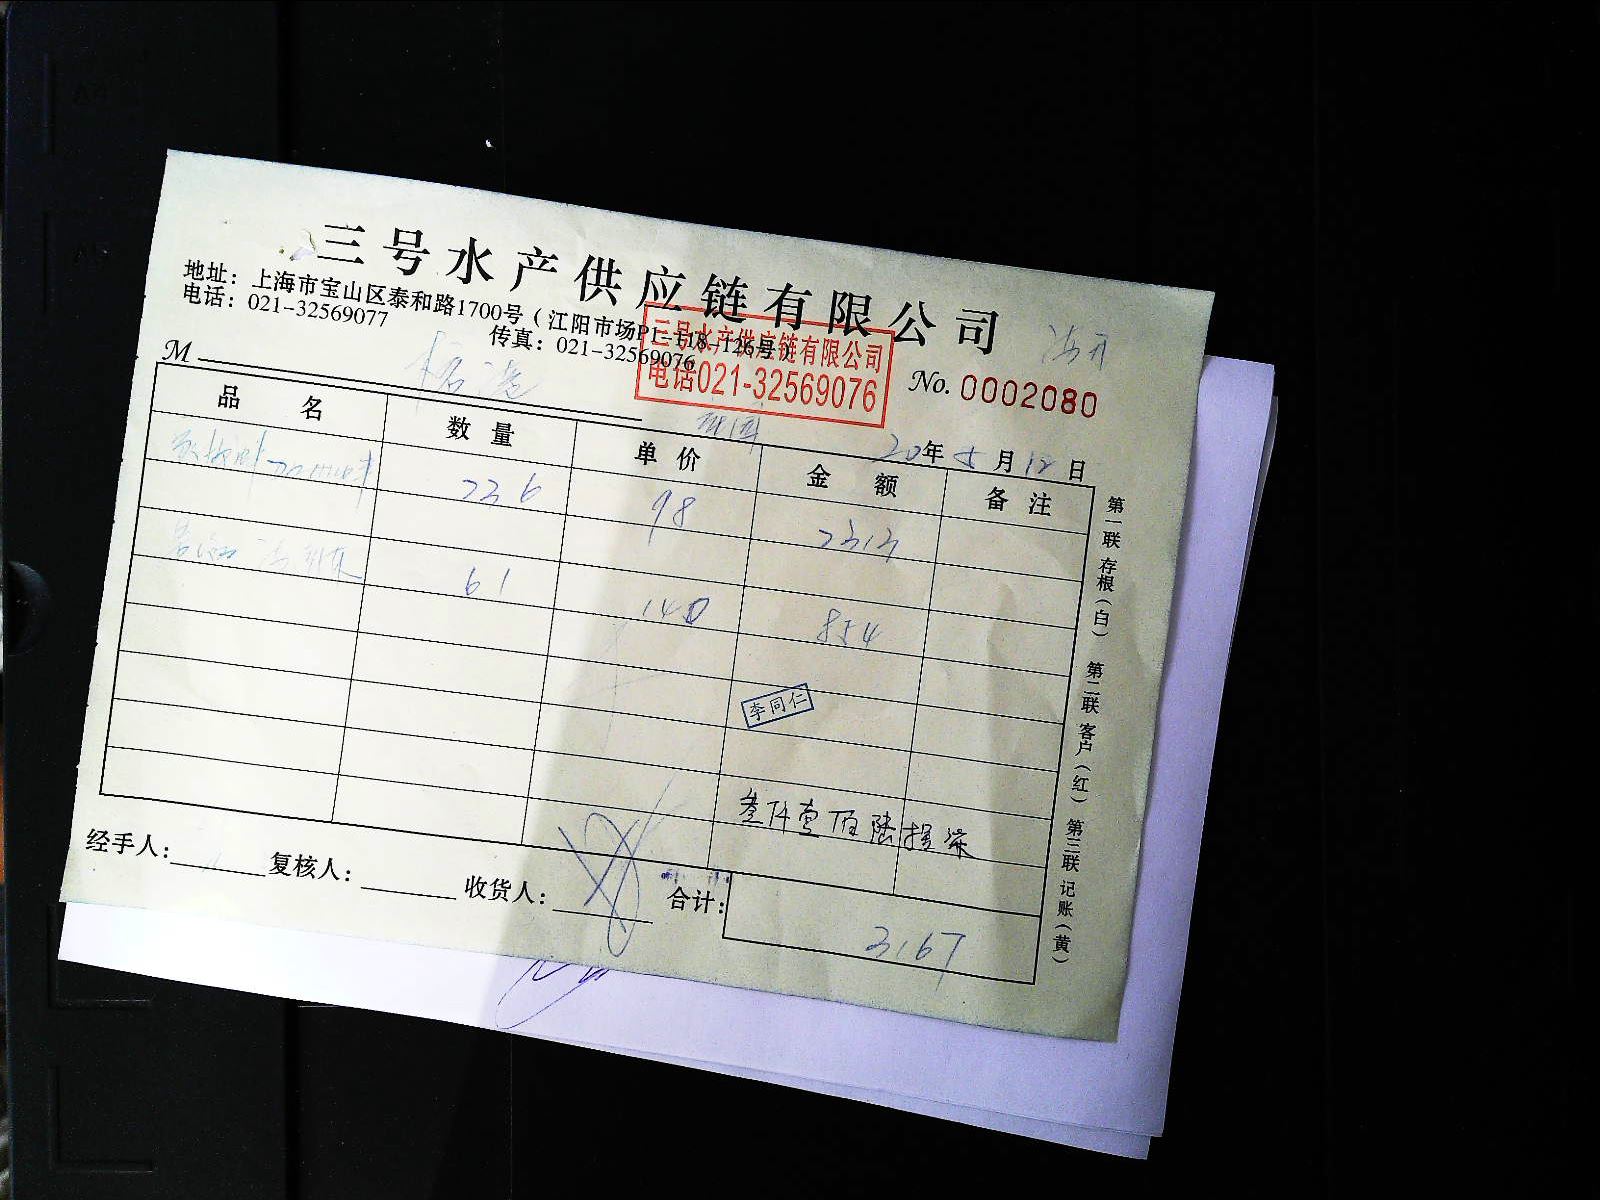 三号水产供应链有限公司
地址：上海市宝山区泰和路1700号（江阳市场P1-118-126号）
电话：021-32569077 传真：021-32569076
三号水产供应链有限公司
电话021-32569076
M
No. 0002080
20年5月12日
品名 数量 单价 金额 备注
236 98 2313
61 140 854
李同仁
叁仟壹佰陆拾柒
经手人： 复核人： 收货人： 合计： 3167
第一联 存根（白） 第二联 客户（红） 第三联 记账（黄）